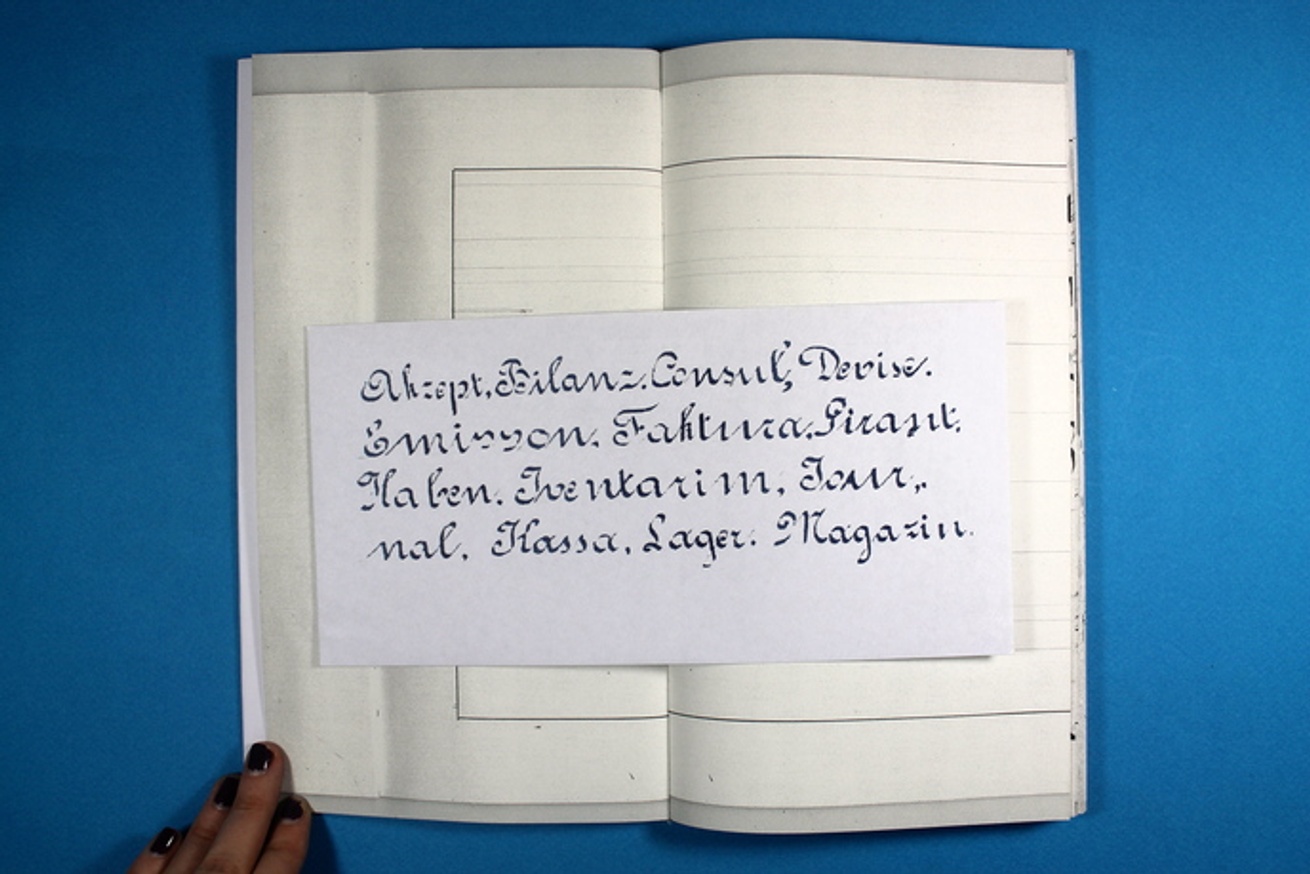 Akzept, Bilanz. Consul, Devise.
Emisson. Faktura. Girant.
Haben. Iventarim, Jour„
nal, Kassa, Lager. Magazin.